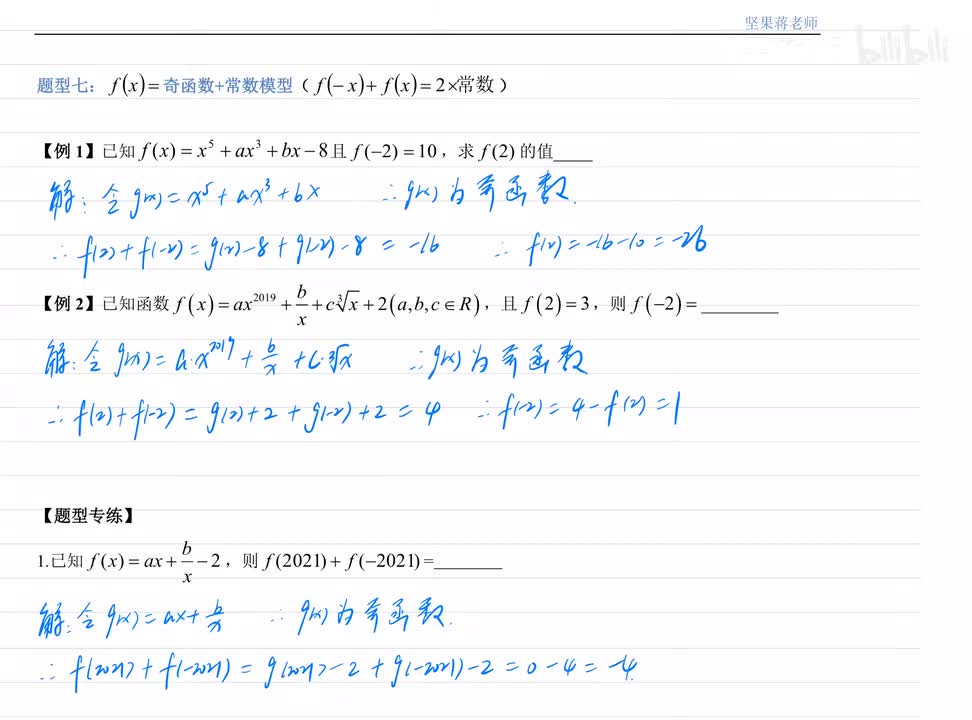 坚果蒋老师
bilibili
题型七：f(x)=奇函数+常数模型（f(−x)+f(x)=2×常数）
【例 1】已知 f(x)=x⁵+ax³+bx−8且 f(−2)=10，求 f(2) 的值____
解：令 g(x)=x⁵+ax³+bx ∴g(x) 为奇函数.
∴f(2)+f(-2)=g(2)-8+g(-2)-8=-16 ∴f(2)=-16-10=-26
【例 2】已知函数 f(x)=ax²⁰¹⁹+b/x+c∛x+2(a,b,c∈R)，且 f(2)=3，则 f(−2)=________
解：令 g(x)=a·x²⁰¹⁹+b/x+c·∛x ∴g(x)为奇函数
∴f(2)+f(-2)=g(2)+2+g(-2)+2=4 ∴f(-2)=4-f(2)=1
【题型专练】
1.已知 f(x)=ax+b/x−2，则 f(2021)+f(−2021)=________
解：令 g(x)=ax+b/x ∴g(x)为奇函数.
∴f(2021)+f(-2021)=g(2021)-2+g(-2021)-2=0-4=-4.